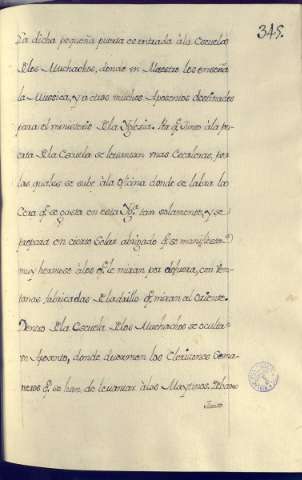 345.
La dicha pequeña puerta es entrada à la Escuela
de los Muchachos, donde un Maestro los enseña
la Musica, y a otros muchos Aposentos destinados
para el ministerio de la Yglesia. Ay q.e junto à la pu-
erta de la Escuela se levantan unas Escaleras, por
las quales se sube à la oficina donde se labra la
Cera q.e se gasta en esta Yg.a tan solamente, y se
prepara en cierto Solar abrigado q.e se manifiesta
muy hermoso à los q.e le miran por defuera, con Ven-
tanas fabricadas de ladrillo q.e miran al Oriente.
Dentro de la Escuela de los Muchachos se oculta
un Aposento, donde duermen los Clerizones Sema-
neros q.e se han de levantar à los Maytines. Abaxo